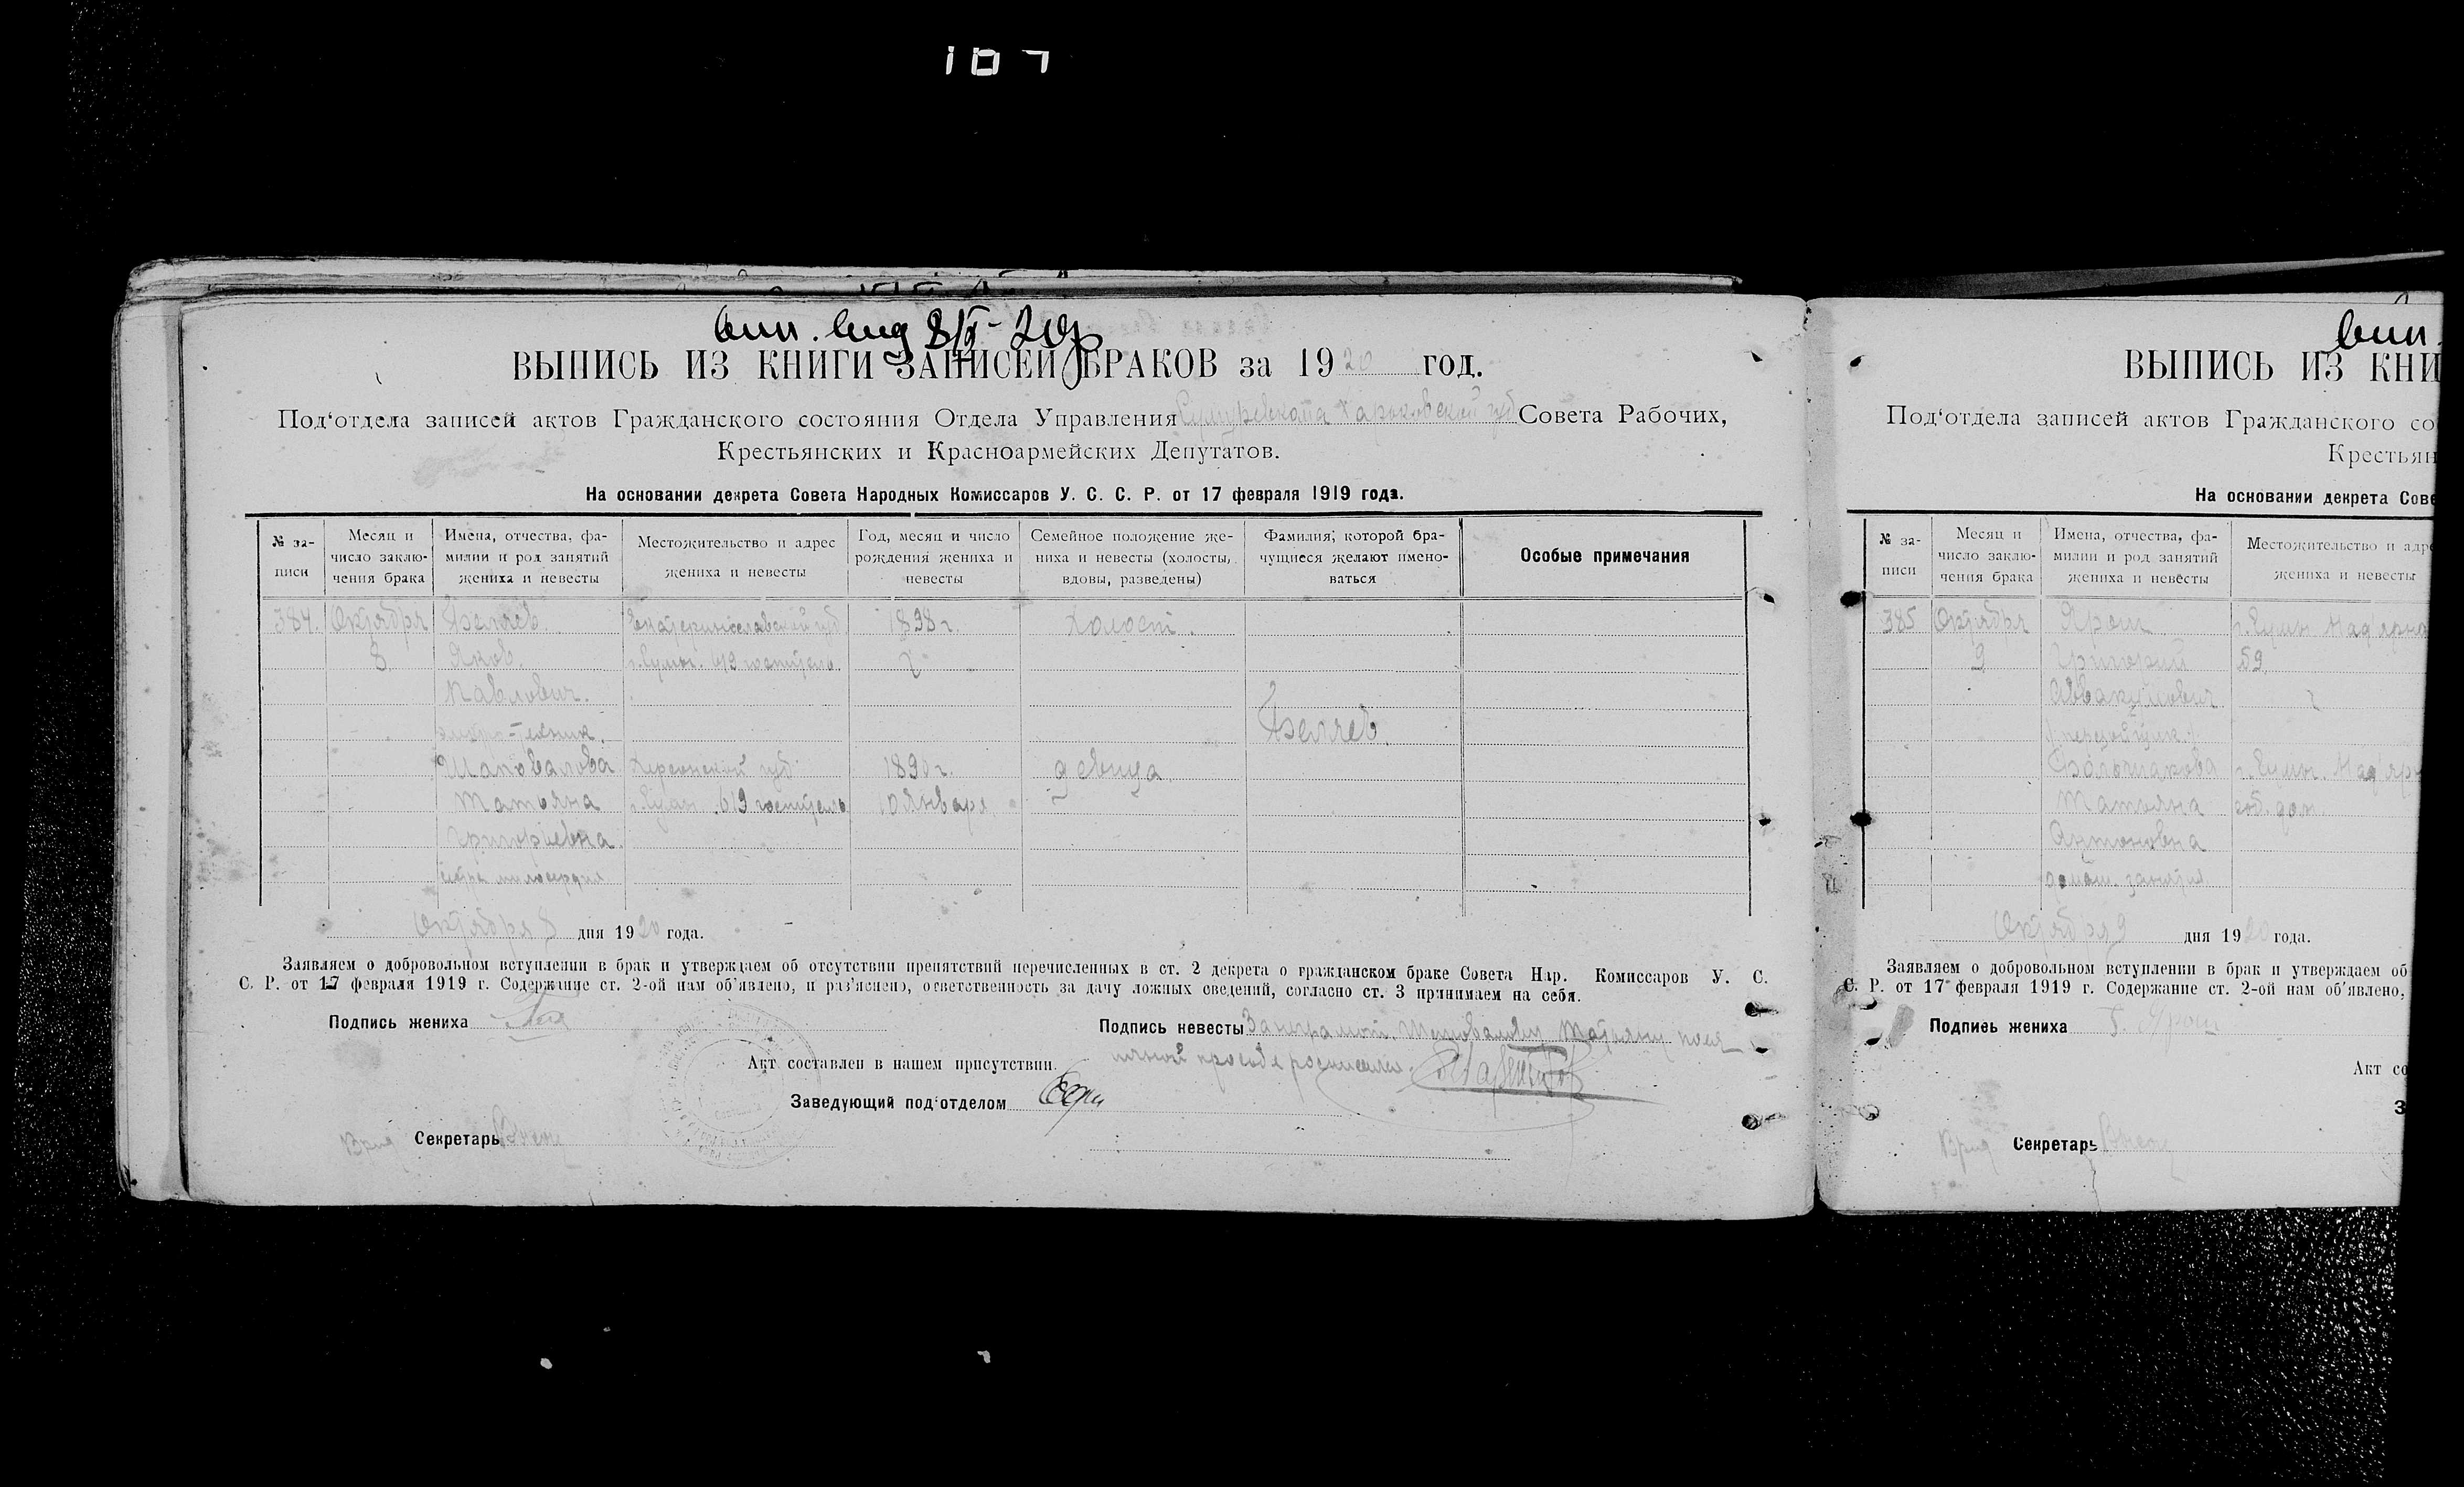 107
ВЫПИСЬ ИЗ КНИГИ ЗАПИСЕЙ БРАКОВ за 1920 год.
Под‘отдела записей актов Гражданского состояния Отдела Управления Харьковской губ Совета Рабочих,
Крестьянских и Красноармейских Депутатов.
На основании декрета Совета Народных Комиссаров У. С. С. Р. от 17 февраля 1919 года.
№ за-
писи
Месяц и
число заклю-
чения брака
Имена, отчества, фа-
милии и род занятий
жениха и невесты
Местожительство и адрес
жениха и невесты
Год, месяц и число
рождения жениха и
невесты
Семейное положение же-
ниха и невесты (холосты,
вдовы, разведены)
Фамилия, которой бра-
чущиеся желают имено-
ваться
Особые примечания
384. Октября Беляев. Екатеринославской губ. 1898 г. Холост.
8. Яков. г. Сумы. 619 госпиталь.
Павлович.
Беляев.
Шаповалова Херсонской губ. 1890 г. девица.
Татьяна г. Сумы. 619 госпиталь 10 Января
Григориевна.
сестра милосердия
Октября 8 дня 1920 года.
Заявляем о добровольном вступлении в брак и утверждаем об отсутствии препятствий перечисленных в ст. 2 декрета о гражданском браке Совета Нар. Комиссаров У. С.
С. Р. от 17 февраля 1919 г. Содержание ст. 2-ой нам об‘явлено, и раз‘яснено, ответственность за дачу ложных сведений, согласно ст. 3 принимаем на себя.
Подпись жениха
Подпись невесты Татьяны
Акт составлен в нашем присутствии. личной просьбе
Заведующий под‘отделом
Врид Секретарь
ВЫПИСЬ ИЗ КНИ
Под‘отдела записей актов Гражданского со
Крестьян
На основании декрета Сове
№ за-
писи
Месяц и
число заклю-
чения брака
Имена, отчества, фа-
милии и род занятий
жениха и невесты
Местожительство и адре
жениха и невесты
385 Октября Ярош г. Сумы
9 Григорий 59
Аввакумович
Татьяна соб. дом.
Антоновна
домаш. занятия
Октября 9 дня 1920 года.
Заявляем о добровольном вступлении в брак и утверждаем об
С. Р. от 17 февраля 1919 г. Содержание ст. 2-ой нам об‘явлено,
Подпись жениха Г. Ярош
Акт со
З
Врид Секретарь